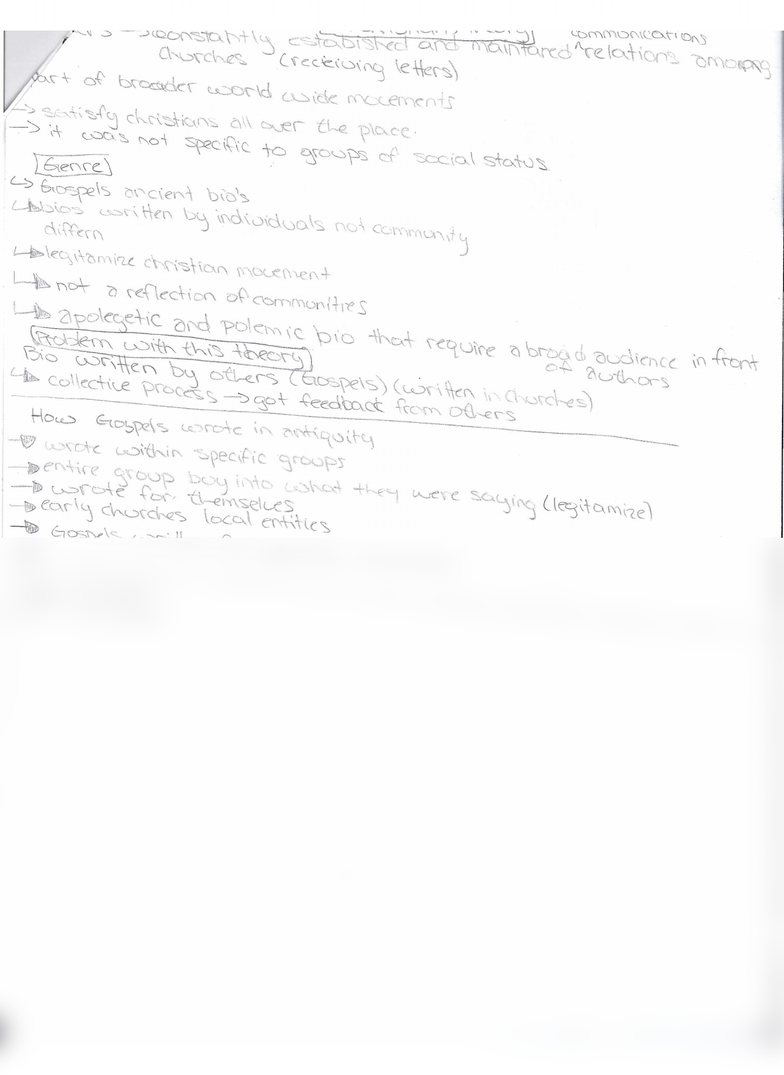 constantly established and maintared ^relations among
communications
churches (receiving letters)
part of broader world wide movements
→ satisfy christians all over the place.
→ it was not specific to groups of social status
Genre
↳ Gospels ancient bio's
↳ bios written by individuals not community
differn
↳ legitamize christian movement
↳ not a reflection of communities
↳ apolegetic and polemic bio that require a broad audience in front
of authors
(Problem with this theory)
Bio written by others (Gospels) (written in churches)
↳ collective process → got feedback from others
How Gospels wrote in antiquity
→ wrote within specific groups
→ entire group buy into what they were saying (legitamize)
→ wrote for themselves
→ early churches local entities
→ Gospels